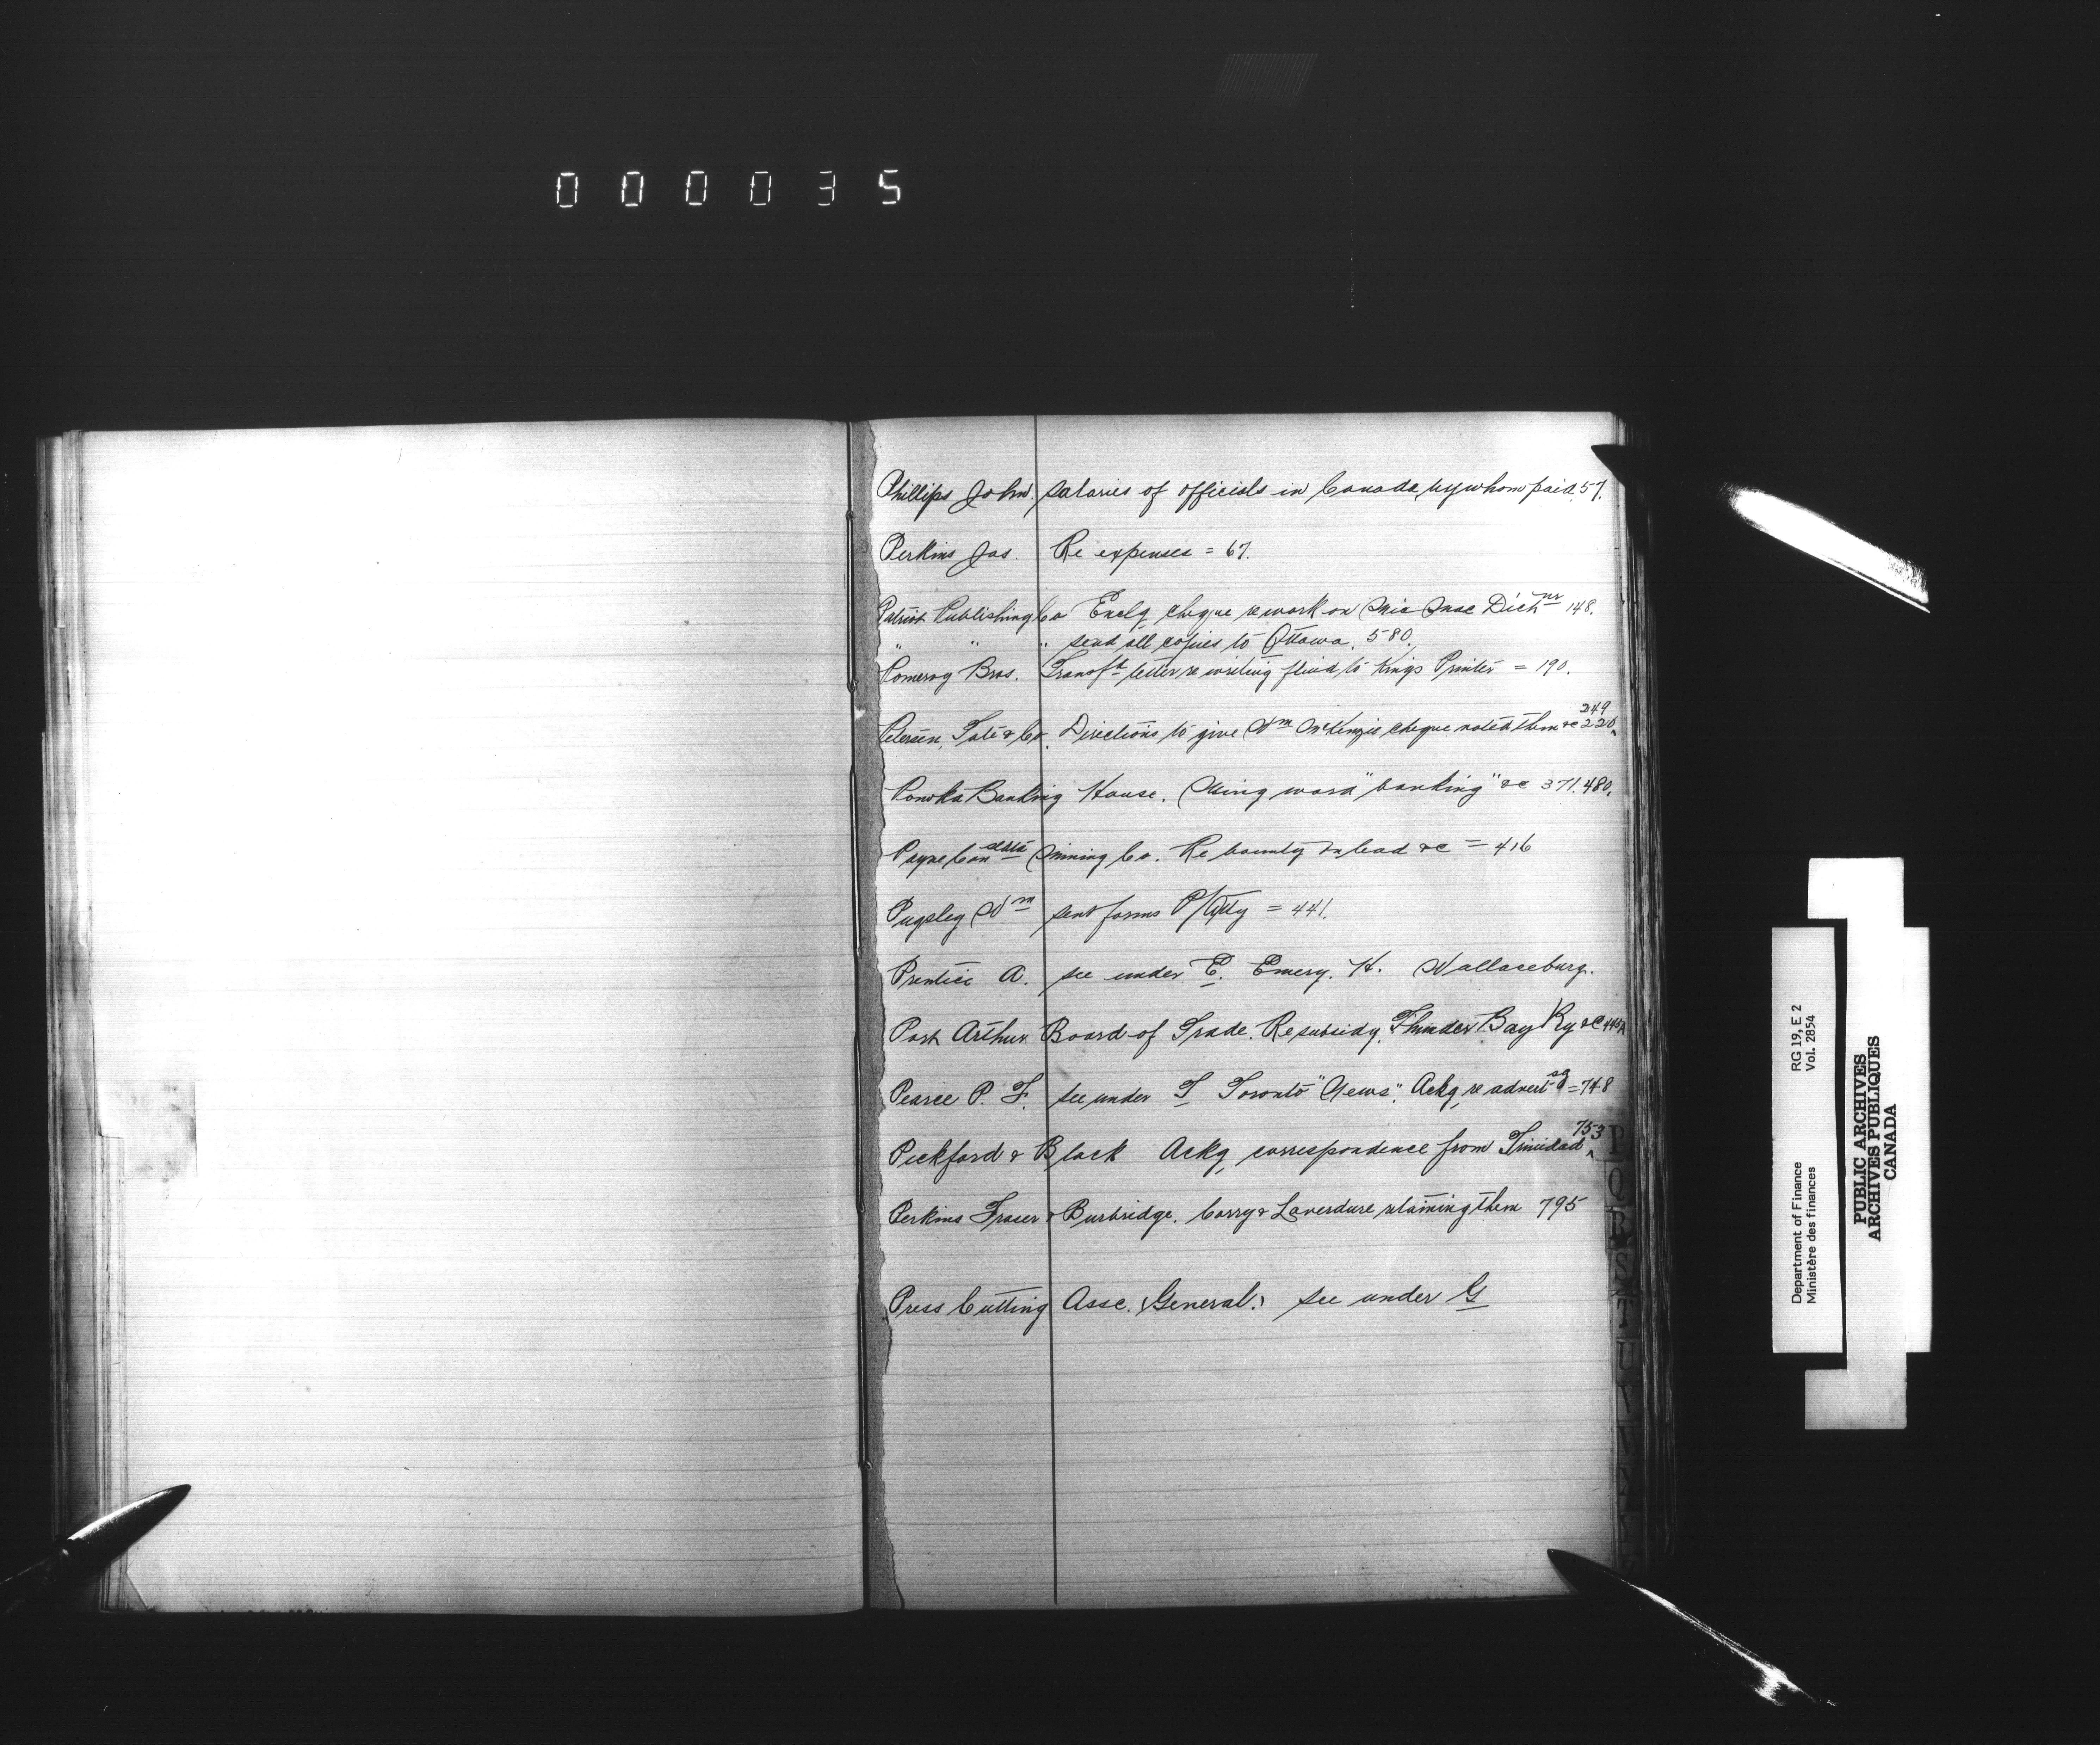 000035
Phillips John. Salaries of officials in Canada, by whom paid 57.
Perkins Jas. Re expenses = 67.
Patriot Publishing Co Enclg cheque re work on 148.
" " " send all copies to Ottawa. 580.
Pomeroy Bros. Transfd letter re writing fluid to Kings Printer = 190.
249
Petersen, Tate & Co. Directions to give Wm McKenzie cheque noted them &c 220
Ponoka Banking House. Using word "banking" &c 371. 480.
Payne Consoldtd Mining Co. Re bounty on lead &c = 416
Pugsley Wm sent forms P/Atty = 441.
Prentice A. see under E. Emery. H. Wallaceburg.
Port Arthur Board of Trade. Re subsidy. Thunder Bay Ry &c 445A
Pearce P. F. see under T Toronto "News". Ackg re advertsg = 748
753
Pickford & Black Ackg correspondence from Trinidad
Perkins Fraser & Burbridge. Corry & Laverdure retaining them 795
Press Cutting Assc. (General.) see under G
P
Q
R
S
T
U
RG 19, E 2
Vol. 2854
Department of Finance
Ministère des finances
PUBLIC ARCHIVES
ARCHIVES PUBLIQUES
CANADA